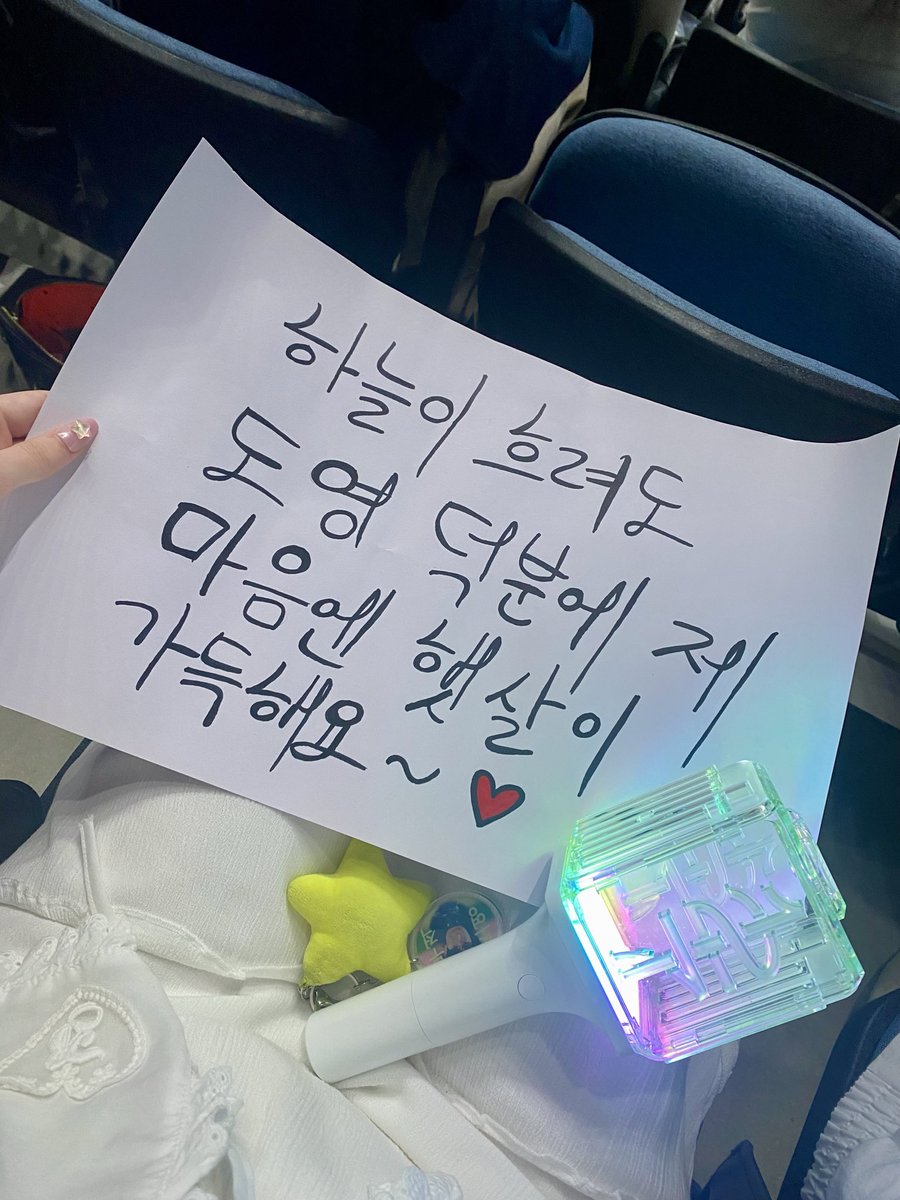 하늘이 흐려도
도영 덕분에 제
마음엔 햇살이
가득해요~♥